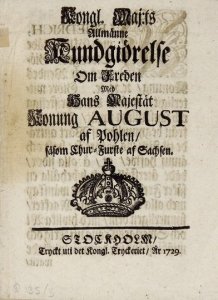 Kongl. Maj:ts
Allmänne
Kundgiörelse
Om Freden
Med
Hans Majestät
Konung AUGUST
af Pohlen/
såsom Chur-Furste af Sachsen.
STOCKHOLM/
Tryckt uti det Kongl. Tryckeriet/ År 1729.